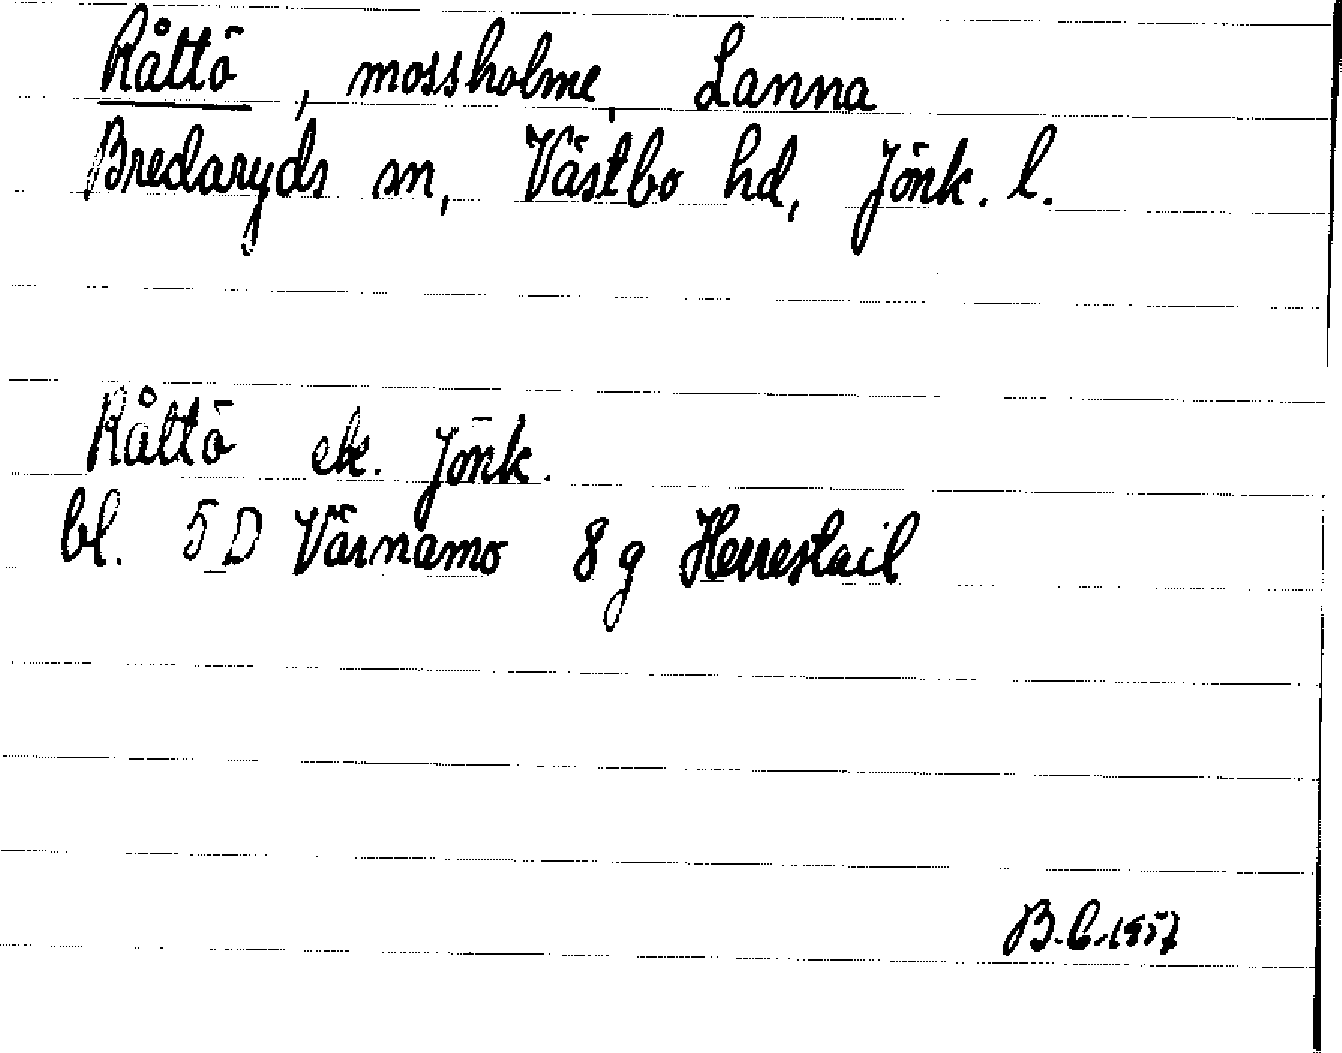 Råttö, mossholme, Lanna
Bredaryds sn, Västbo hd, Jönk. l.
Råttö ek. Jönk.
bl. 5D Värnamo 8g Herrestad
B.E. 1957